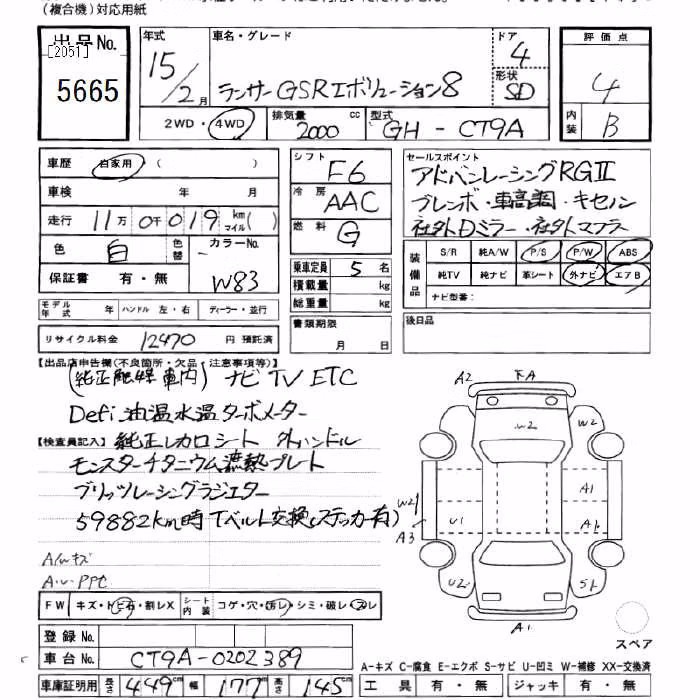 (複合機)対応用紙
出品No.
[2051]
5665
年式
15/2月
車名・グレード
ランサーGSRエボリューション8
ドア
4
形状
SD
評価点
4
内装
B
2WD・4WD
排気量
2000 cc
型式
GH-CT9A
車歴 自家用 ( )
車検 年 月
走行 11万0千019 km マイル( )
色 白 色替
カラーNo.
W83
保証書 有・無
モデル年式 年 ハンドル 左・右 ディーラー・並行
リサイクル料金 12470 円 預託済
シフト F6
冷房 AAC
燃料 G
乗車定員 5 名
積載量 kg
総重量 kg
書類期限
月 日
セールスポイント
アドバンレーシングRGⅡ
ブレンボ・車高調・キセノン
社外Dミラー・社外マフラー
装備品
S/R 純A/W P/S P/W ABS
純TV 純ナビ 革シート 外ナビ エアB
ナビ型番:
後日品
【出品店申告欄(不良箇所・欠品・注意事項等)】
(純正触媒車内) ナビTV ETC
Defi 油温水温ターボメーター
【検査員記入】純正レカロシート 外ハンドル
モンスターチタニウム遮熱プレート
ブリッツレーシングラジエター
59882km時Tベルト交換(ステッカー有)
A/Wキズ
FW キズ・トビ石・割レX
シート内装 コゲ・穴・汚レ・シミ・破レ・スレ
登録No.
車台No. CT9A-0202389
車庫証明用 長さ 449cm 幅 177cm 高さ 145cm
A2
下A
W2
W2
A1
A1
W2
A3
U1
U2
S1
A1
スペア
A-キズ C-腐食 E-エクボ S-サビ U-凹ミ W-補修 XX-交換済
工具 有・無 ジャッキ 有・無